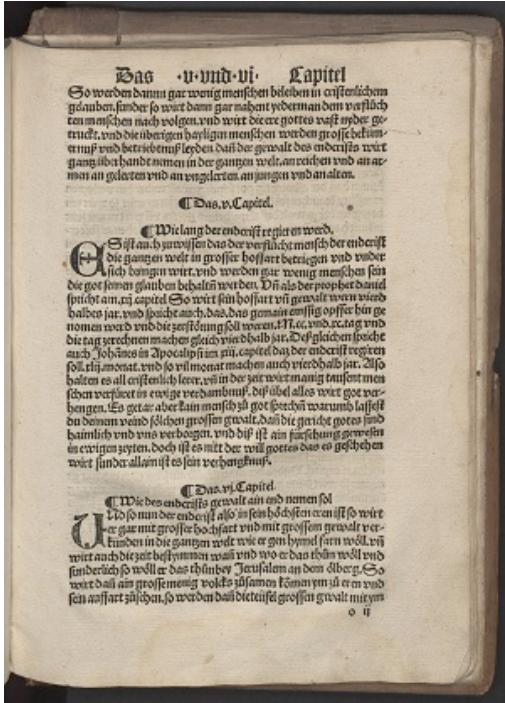 Das ·v·vnd·vj· Capitel
So werden dannn gar wenig menschen beleiben in cristenlichem
gelauben. sunder so wirt dann gar nahent yederman dem verflůch
ten menschen nach volgen. vnd wirt die ere gottes vast nyder ge-
truckt. vnd die überigen hayligen menschen werden grosse beküm-
ernuß vnd betriebtnuß leyden dañ der gewalt des endcrists wirt
gantz über handt nemen in der gantzen welt. an reichen vnd an ar-
men an gelerten vnd an vngelerten. an jungen vnd an alten.
¶ Das.v.Capitel.
¶ Wie lang der endcrist regieren werd.
ES ist auch zu wissen das der verflůcht mensch der endcrist
die gantzen welt in grosser hoffart betriegen vnd vnder
sich bringen wirt. vnd werden gar wenig menschen sein
die got seinen glauben behaltñ werden. Vñ als der prophet daniel
spricht am.xij.capitel So wirt sein hoffart vñ gewalt wern vierd
halbes jar. vnd spricht auch. das. das gemain emssig opffer hin ge
nomen werd vnd die zerstörung soll weren. M.cc.vnd.xc.tag vnd
die tag zerechnen machen gleich vierdhalb jar. Deßgleichen spricht
auch Johãnes in Apocalipsi im xiij.capitel daz der endcrist regiren
soll.xlij.monat. vnd so vil monat machen auch vierdhalb jar. Also
halten es all cristenlich lerer. vñ in der zeit wirt manig tausent men
schen verfüret in ewige verdambnuß. diß übel alles wirt got ver-
hengen. Es getar aber kain mensch zů got sprechñ warumb lassest
du deinem veind sölchen grossen gwalt. dañ die gericht gotes sind
haimlich vnd vns verborgen. vnd diß ist ain fürsehung gewesen
in ewigen zeyten. doch ist es nitt der will gottes das es geschehen
wirt sunder allain ist es sein verhengknuß.
¶ Das.vj.Capitel
¶ Wie des endcrists gewalt ain end nemen sol
Vnd so nun der endcrist also in sein höchsten eren ist so wirt
er gar mit grosser hochfart vnd mit grossem gewalt ver-
kunden in die gantzen welt wie er gen hymel farn wöll. vñ
wirt auch die zeit bestymmen wañ vnd wo er das thůn wöll vnd
sunderlich so wöll er das thůn bey Jerusalem an dem ölberg. So
wirt dañ ain grosse menig volcks zůsamen kömen ym zů eren vnd
sein auffart zůsehen. so werden dañ die teüfel grossen gwalt mit ym
o ij